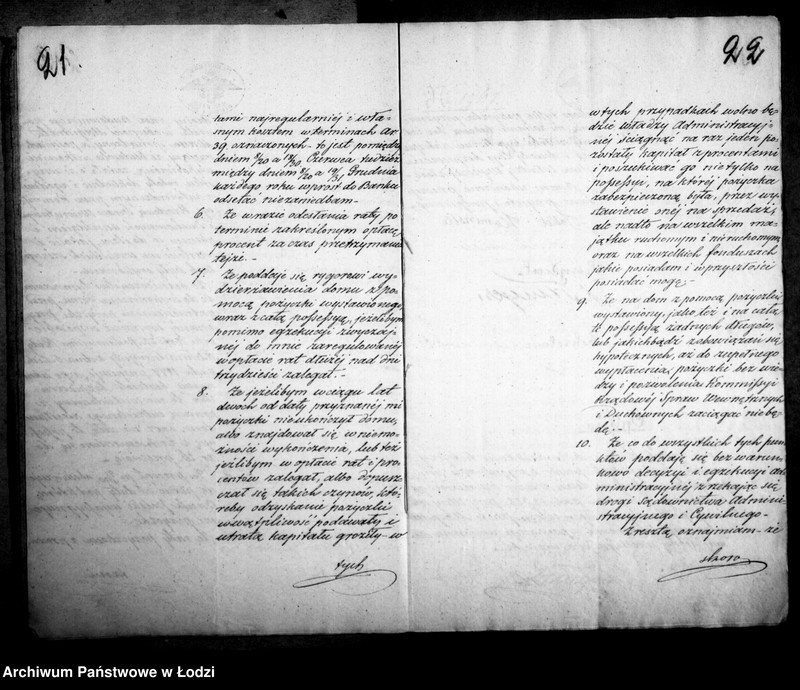 21.
tami najregularniéj i wła-
snym kosztem w terminach Ar
39 oznaczonych to jest pomiędzy
dniem 8/20 a 18/30 Czerwca tudzież
między dniem 8/20 a 19/31 Grudnia
każdego roku wprost do Banku
odsełać niezaniedbam-
6. Że w razie odesłania raty po
terminie zakreślonym opłacę
procent za czas przetrzymania
tejże.-
7. Że poddaję się rygorowi wy-
dzierżawienia domu z po-
mocą pożyczki wystawionego
wraz z całą possessyą, jeżelibym
pomimo egzekucyi zwyczaj-
néj do mnie zaregulowanéj
w opłacie rat dłużéj nad dni
trzydzieści zalegał.-
8. Że jeżelibym w ciągu lat
dwóch od daty przyznanéj mi
pożyczki nieukończył domu,
albo znajdował się w niemo-
żności wykończenia, lub też
jeżlibym w opłacie rat i pro-
centów zalegał, albo dopusz-
czał się takich czynów, któ-
reby odzyskanie pożyczki
w wątpliwość poddawały i
utratą kapitału groziły- w
tych
22
w tych przypadkach wolno bę-
dzie władzy Administracyj-
néj ściągnąć na raz jeden po-
zostały kapitał z procentami
i poszukiwać go nietylko na
possessyi, na któréj pożyczka
zabezpieczoną była, przez wy-
stawienie onéj na sprzedaż,
ale nadto na wszelkim ma-
jątku ruchomym i nieruchomym,
oraz na wszelkich funduszach
jakie posiadam i w przyszłości
posiadać mogę.-
9. Że na dom z pomocą pożyczki
wystawiony, jako też i na całą
possessyą żadnych długów,
lub jakichbądź zobowiązań się
hypotecznych, aż do zupełnego
wypłacenia pożyczki bez wie-
dzy i pozwolenia Kommissyi
Rządowéj Spraw Wewnętrznych
i Duchownych zaciągać niebę-
dę.-
10. Że co do wszystkich tych pun-
któw poddaję się bezwarun-
kowo decyzyi i egzekucyi ad-
ministracyjnéj zrzekając się
drogi sądownictwa Admini-
stracyjnego i Cywilnego-
Zresztą, oznajmiam- że
skoro
Archiwum Państwowe w Łodzi